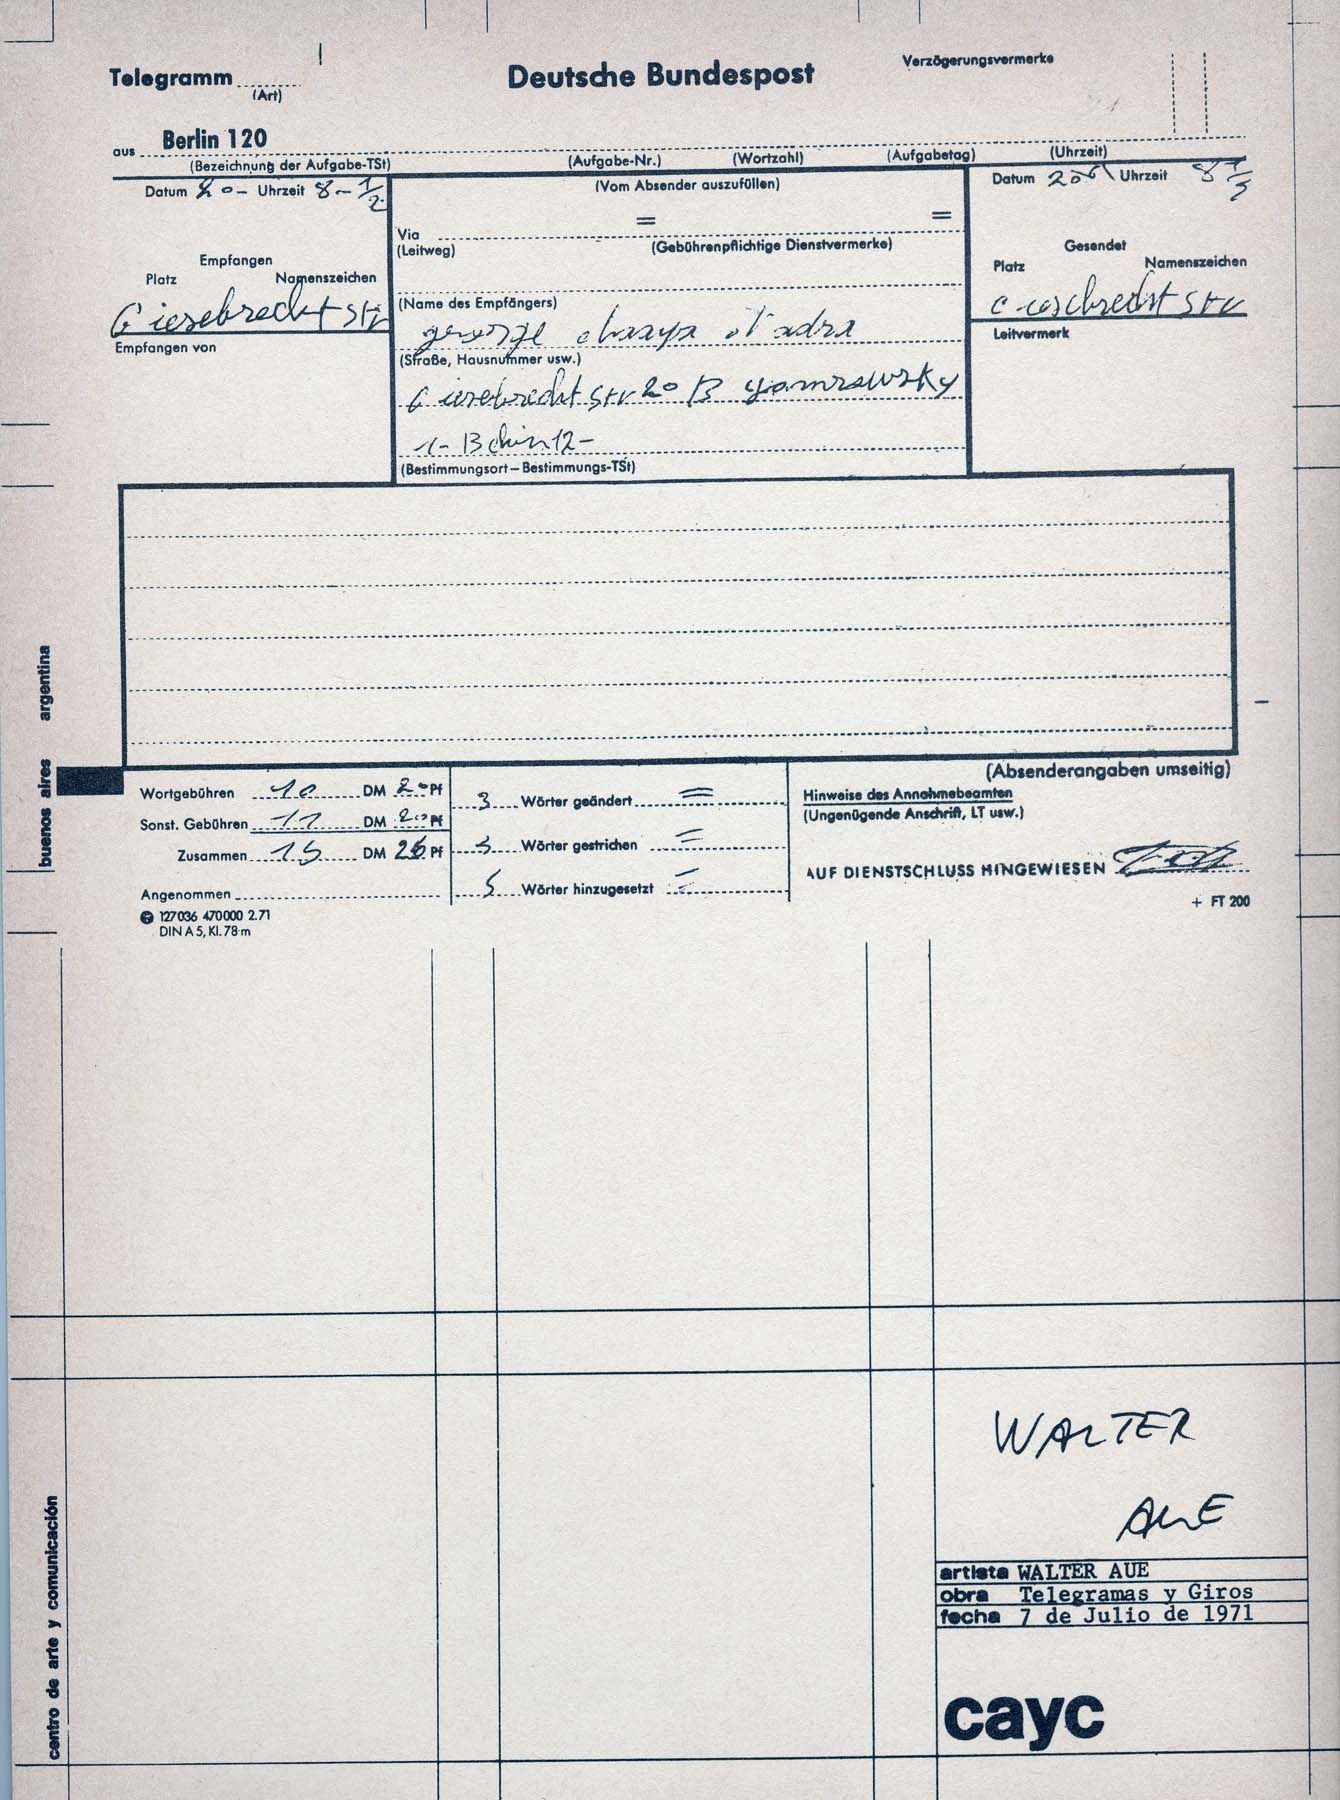 Telegramm
(Art)
Deutsche Bundespost
Verzögerungsvermerke
aus Berlin 120
(Bezeichnung der Aufgabe-TSt) (Aufgabe-Nr.) (Wortzahl) (Aufgabetag) (Uhrzeit)
Datum 20- Uhrzeit 8-1/2
(Vom Absender auszufüllen)
Datum Uhrzeit
= =
Via
(Leitweg) (Gebührenpflichtige Dienstvermerke)
Empfangen
Platz Namenszeichen
Giesebrecht Str
Empfangen von
Gesendet
Platz Namenszeichen
Giesebrecht Str
Leitvermerk
(Name des Empfängers)
(Straße, Hausnummer usw.)
Giesebrecht Str 20 B
(Bestimmungsort – Bestimmungs-TSt)
Wortgebühren 10 DM 20 Pf
Sonst. Gebühren 11 DM 20 Pf
Zusammen 15 DM 26 Pf
Angenommen
127036 470000 2.71
DIN A 5, Kl. 78 m
3 Wörter geändert =
Wörter gestrichen =
5 Wörter hinzugesetzt =
(Absenderangaben umseitig)
Hinweise des Annahmebeamten
(Ungenügende Anschrift, LT usw.)
AUF DIENSTSCHLUSS HINGEWIESEN
+ FT 200
buenos aires argentina
centro de arte y comunicación
WALTER
AUE
artista WALTER AUE
obra Telegramas y Giros
fecha 7 de Julio de 1971
cayc